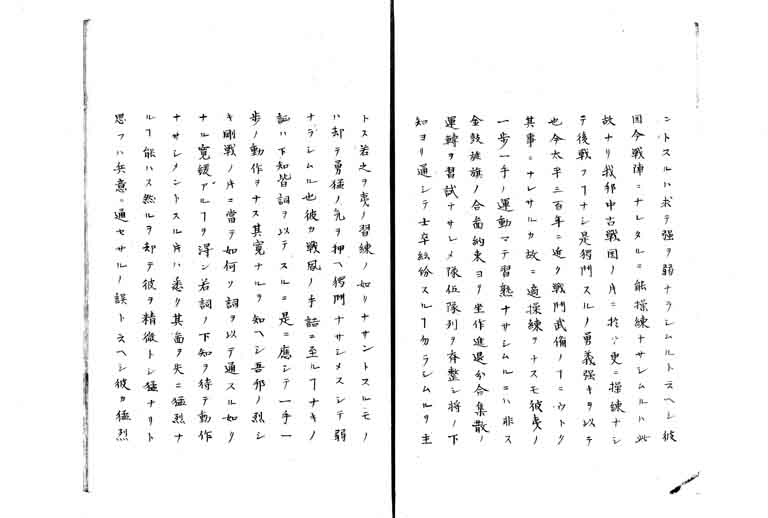 ントスルハ求テ強ヲ弱ナラシムルト云ヘシ彼
国今戦陣ニナレタルニ能操練ナサシムルハ此
故ナリ我邦中古戦国ノ片ニ於ハ更ニ操練ナシ
テ後戦フヿナシ是獨鬥スルノ勇義強キヲ以テ
也今太平三百年ニ近ク戦鬥武備ノヿニウトク
其事ニナレサルカ故ニ適操練ヲナスモ彼夷ノ
一歩一手ノ運動マテ習熟ナサシムルニハ非ス
金鼓旌旗ノ合啚約束ヨリ坐作進退分合集散ノ
運轉ヲ習試ナサシメ隊伍隊列ヲ脊整シ将ノ下
知ヨリ通シテ士卒紛紛スルヿ勿ラシムルヲ主
トス若之ヲ夷ノ習練ノ如クナサントスルモノ
ハ却テ勇猛ノ気ヲ押ヘ獨鬥ナサシメスシテ弱
ナラシムル也彼カ戦風ノ手詰ニ至ルヿナキノ
証ハ下知皆詞ヲ以テスルニ是ニ應シテ一手一
歩ノ動作ヲナス其寛ナルヲ知ヘシ吾邦ノ烈シ
キ剛戦ノ片ニ當テ如何ソ詞ヲ以テ通スル如ク
ナル寛緩アルヿヲ得ン若詞ノ下知ヲ待テ動作
ナサシメントスル片ハ悉ク其啚ヲ失ニ猛烈ナ
ルヿ能ハス然ルヲ却テ彼ヲ精微トシ猛ナリト
思フハ兵意ニ通セサルノ誤ト云ヘシ彼カ猛烈